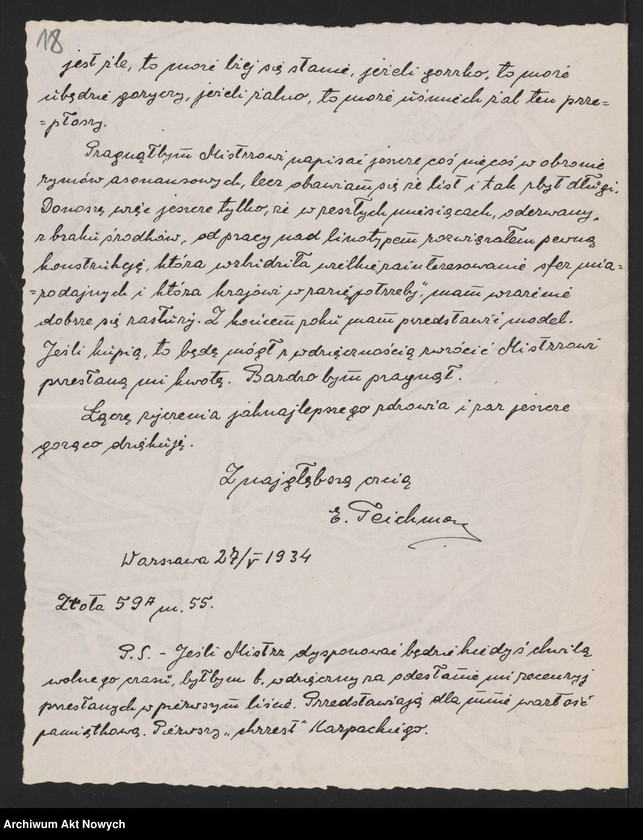 18
jest źle, to może lżej się stanie, jeżeli gorzko, to może
ubędzie goryczy, jeżeli żalno, to może uśmiech żal ten prze-
=płoszy.
Pragnąłbym Mistrzowi napisać jeszcze coś niecoś w obronie
rymów asonansowych, lecz obawiam się że list i tak zbyt długi.
Donoszę więc jeszcze tylko, że w zeszłych miesiącach, oderwany,
z braku środków, od pracy nad linotypem rozwiązałem pewną
konstrukcję, która wzbudziła wielkie zainteresowanie sfer mia=
=rodajnych i która krajowi w razie „potrzeby", mam wrażenie
dobrze się zasłuży. Z końcem roku mam przedstawić model.
Jeśli kupią, to będę mógł z wdzięcznością zwrócić Mistrzowi
przesłaną mi kwotę. Bardzo bym pragnął.
Łączę życzenia jaknajlepszego zdrowia i raz jeszcze
gorąco dziękuję.
Z najgłębszą czcią
E. Teichman
Warszawa 27/V 1934
Złota 59A m. 55.
P.S. - Jeśli Mistrz dysponować będzie kiedyś chwilą
wolnego czasu, byłbym b. wdzięczny za odesłanie mi recenzyj
przesłanych w pierwszym liście. Przedstawiają dla mnie wartość
pamiątkową. Pierwszy „chrzest" Karpackiego.
Archiwum Akt Nowych